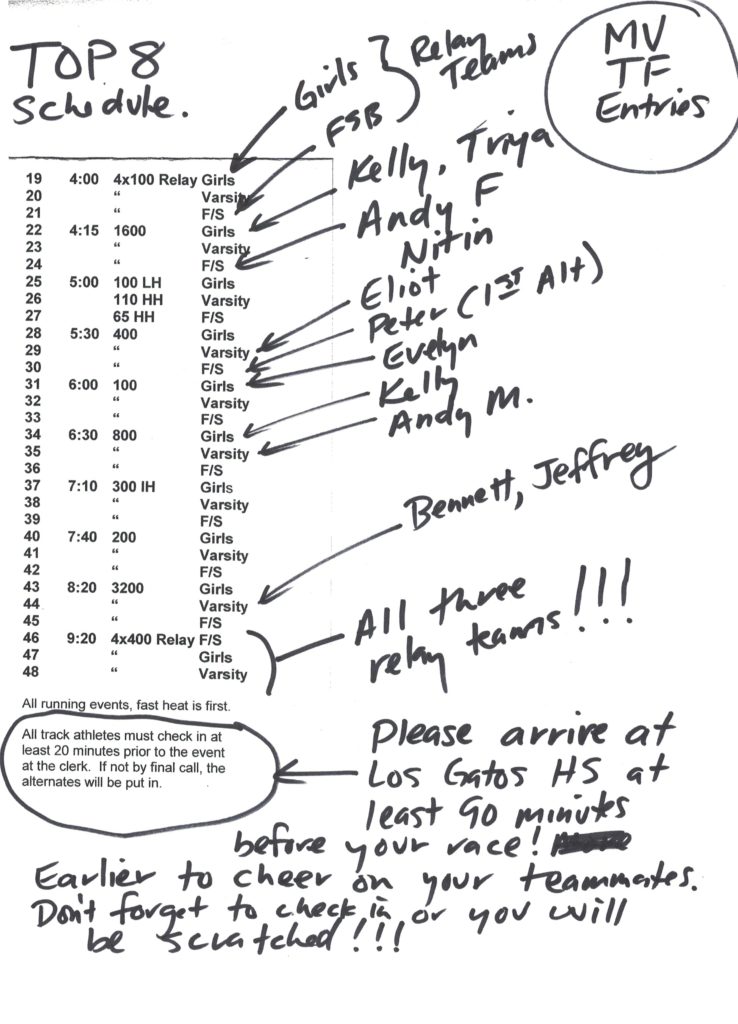 TOP 8
Schedule.
Girls } Relay Teams
FSB
MV
TF
Entries
19 4:00 4x100 Relay Girls
20 “ Varsity
21 “ F/S
22 4:15 1600 Girls
23 “ Varsity
24 “ F/S
25 5:00 100 LH Girls
26 110 HH Varsity
27 65 HH F/S
28 5:30 400 Girls
29 “ Varsity
30 “ F/S
31 6:00 100 Girls
32 “ Varsity
33 “ F/S
34 6:30 800 Girls
35 “ Varsity
36 “ F/S
37 7:10 300 IH Girls
38 “ Varsity
39 “ F/S
40 7:40 200 Girls
41 “ Varsity
42 “ F/S
43 8:20 3200 Girls
44 “ Varsity
45 “ F/S
46 9:20 4x400 Relay F/S
47 “ Girls
48 “ Varsity
Kelly, Triya
Andy F
Nitin
Eliot
Peter (1ST Alt)
Evelyn
Kelly
Andy M.
Bennett, Jeffrey
All three
relay teams!!!
All running events, fast heat is first.
All track athletes must check in at
least 20 minutes prior to the event
at the clerk. If not by final call, the
alternates will be put in.
Please arrive at
Los Gatos HS at
least 90 minutes
before your race!
Earlier to cheer on your teammates.
Don't forget to check in or you will
be scratched!!!